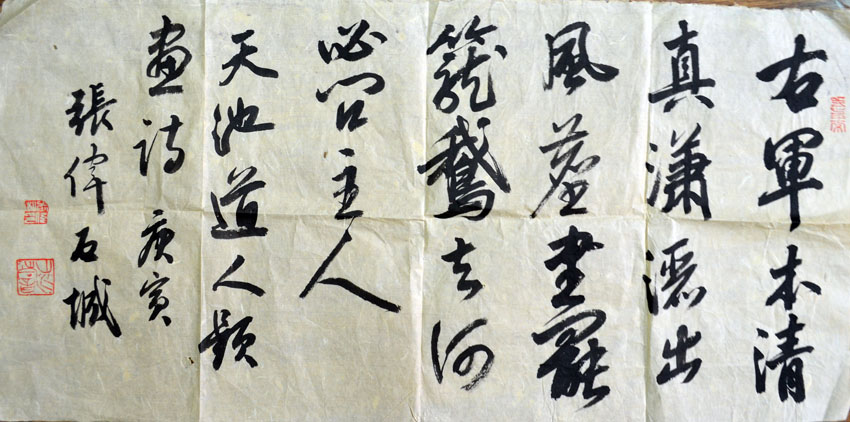 右軍本清
真瀟灑出
風塵書罷
籠鵝去何
必問主人
天池道人題
畫詩 庚寅
張偉 石城